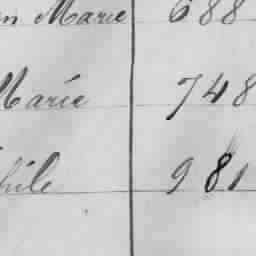 Marie 688
Marie 748
981